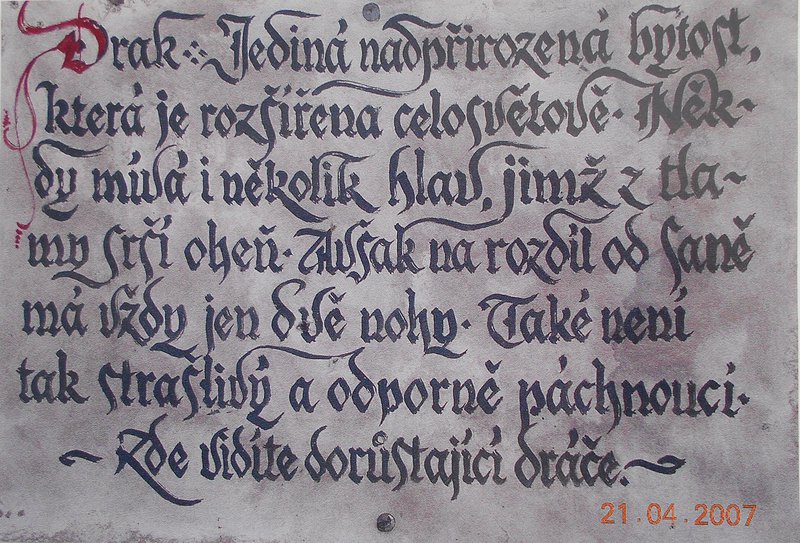 Drak ⁘ Jediná nadpřirozená bytost,
která je rozšířena celosvětově. Něk-
dy mívá i několik hlav, jimž z tla-
my srší oheň. Avšak na rozdíl od saně
má vždy jen dvě nohy. Také není
tak strašlivý a odporně páchnoucí.
~ Zde vidíte dorůstající dráče. ~
21.04.2007